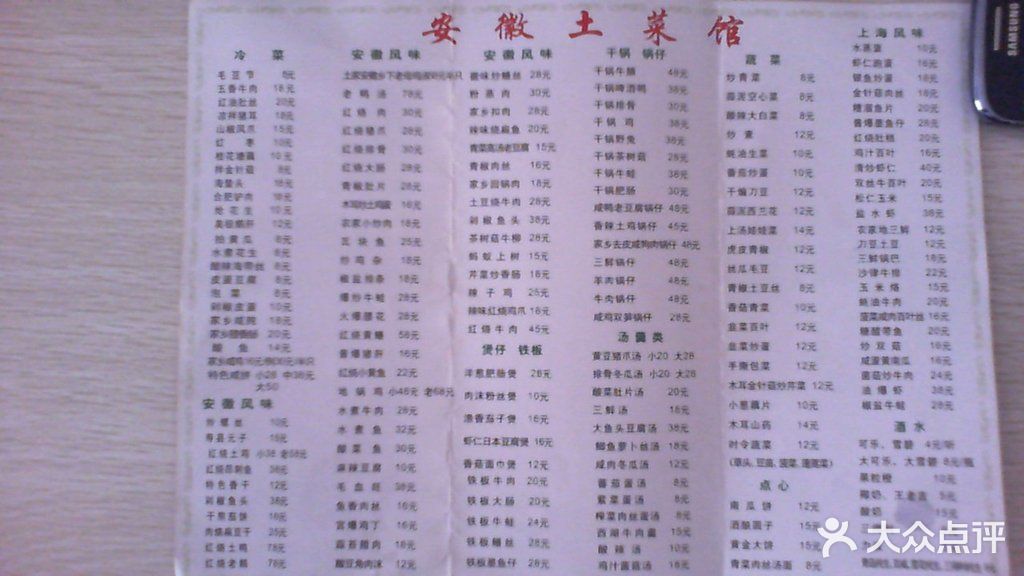 安徽土菜馆
冷 菜
毛豆节 8元
五香牛肉 18元
红油肚丝 20元
凉拌猪耳 18元
山椒凤爪 15元
红 枣 10元
桂花糖藕 10元
拌金针菇 8元
海蜇头 18元
合肥驴肉
炝花生 10元
拍黄瓜 8元
水煮花生 8元
酸辣海带丝 8元
皮蛋豆腐 8元
泡 菜 8元
剁椒皮蛋 10元
家乡咸鸭 18元
酸 鱼 14元
特色咸拼 小28 中38元
大50
安徽风味
炒螺丝 10元
寿县元子 15元
红烧土鸡 小38 老58元
红烧昂刺鱼 38元
特色香干 12元
剁椒鱼头 38元
干煎茄饼 16元
肉烧麻豆干 25元
红烧土鸭 78元
红烧老鹅 78元
安徽风味
老鸭汤 78元
红 烧 肉 30元
红烧猪爪 28元
红烧排骨 30元
红烧大肠 28元
青椒肚片 28元
木耳炒土鸡蛋 16元
农家小炒肉 18元
瓦块鱼 25元
炒鸡杂 18元
椒盐排条 18元
爆炒牛蛙 28元
火爆腰花 28元
红烧黄鳝 58元
酱爆猪肝 16元
红烧小黄鱼 22元
地 锅 鸡 小48元 老68元
水煮牛肉 28元
水 煮 鱼 32元
酸 菜 鱼 30元
麻辣豆腐 10元
毛 血 旺 38元
鱼香肉丝 16元
宫爆鸡丁 16元
蒜苔腊肉 18元
酸豆角肉沫 12元
安徽风味
徽味炒鳝丝 28元
粉 蒸 肉 30元
家乡扣肉 28元
辣味烧扁鱼 20元
青菜高汤老豆腐 15元
青椒肉丝 16元
家乡回锅肉 18元
土豆烧牛肉 28元
剁椒鱼头 38元
茶树菇牛柳 28元
蚂蚁上树 15元
芹菜炒香肠 16元
辣 子 鸡 25元
辣味红烧鸡爪 18元
红烧牛肉 45元
煲仔 铁板
洋葱肥肠煲 28元
肉沫粉丝煲 10元
渔香茄子煲 12元
虾仁日本豆腐煲 16元
香菇面巾煲 12元
铁板牛肉 20元
铁板大肠 20元
铁板牛蛙 24元
铁板鳝丝 28元
铁板墨鱼仔 28元
干锅 锅仔
干锅牛腩 48元
干锅啤酒鸭 38元
干锅排骨 30元
干 锅 鸡 38元
干锅野兔 38元
干锅茶树菇 28元
干锅牛蛙 38元
干锅肥肠 30元
咸鸭老豆腐锅仔 48元
香辣土鸡锅仔 45元
家乡去皮咸狗肉锅仔 48元
三鲜锅仔 28元
羊肉锅仔 48元
牛肉锅仔 48元
咸鸡双笋锅仔 28元
汤羹类
黄豆猪爪汤 小20 大28
排骨冬瓜汤 小20 大28
酸菜肚片汤 20元
三鲜汤 18元
大鱼头豆腐汤 38元
鲫鱼萝卜丝汤 18元
咸肉冬瓜汤 12元
番茄蛋汤 8元
紫菜蛋汤 8元
榨菜肉丝蛋汤 8元
西湖牛肉羹 15元
酸 辣 汤 10元
鸡汁菌菇汤 18元
蔬 菜
炒青菜 8元
蒜泥空心菜 8元
酸辣大白菜 8元
炒 素 12元
蚝油生菜 10元
番茄炒蛋 10元
干煸刀豆 12元
蒜泥西兰花 12元
上汤娃娃菜 14元
虎皮青椒 12元
丝瓜毛豆 12元
青椒土豆丝 8元
香菇青菜 10元
韭菜百叶 12元
韭菜炒蛋 12元
手撕包菜 12元
木耳金针菇炒芹菜 12元
小葱藕片 10元
木耳山药 14元
时令蔬菜 12元
(草头、豆苗、菠菜、蓬蒿菜)
点心
南瓜饼 12元
酒酿圆子 15元
黄金大饼 15元
青菜肉丝汤面 8元
上海风味
水蒸蛋 10元
虾仁跑蛋 16元
银鱼炒蛋 18元
金针菇肉丝 16元
糟溜鱼片 20元
酱爆墨鱼仔 28元
红烧肚裆 20元
鸡汁百叶 16元
清炒虾仁 40元
双丝牛百叶 20元
松仁玉米 15元
盐 水 虾 38元
农家地三鲜 12元
刀豆土豆 12元
三鲜锅巴 18元
沙律牛排 22元
玉 米 烙 15元
蚝油牛肉 20元
菠菜咸肉百叶丝 16元
糖醋带鱼 20元
炒 双 菇 16元
咸蛋黄南瓜 16元
菌菇炒牛肉 24元
油 爆 虾 38元
椒盐牛蛙 28元
酒 水
可乐、雪碧 4元/听
大可乐、大雪碧 8元/瓶
果粒橙 10元
椰奶、王老吉 5元
酸奶
大众点评
SAMSUNG